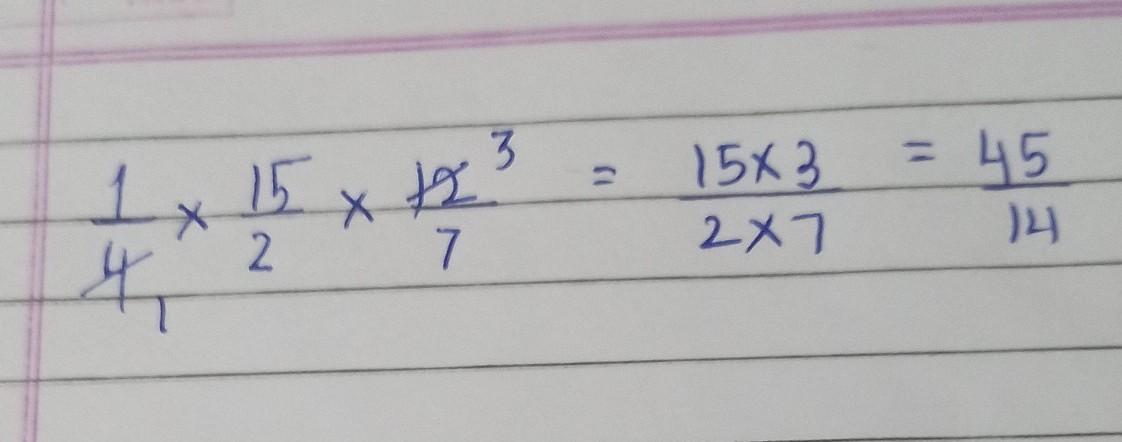 1/4 1 × 15/2 × 12/7 3 = 15×3/2×7 = 45/14